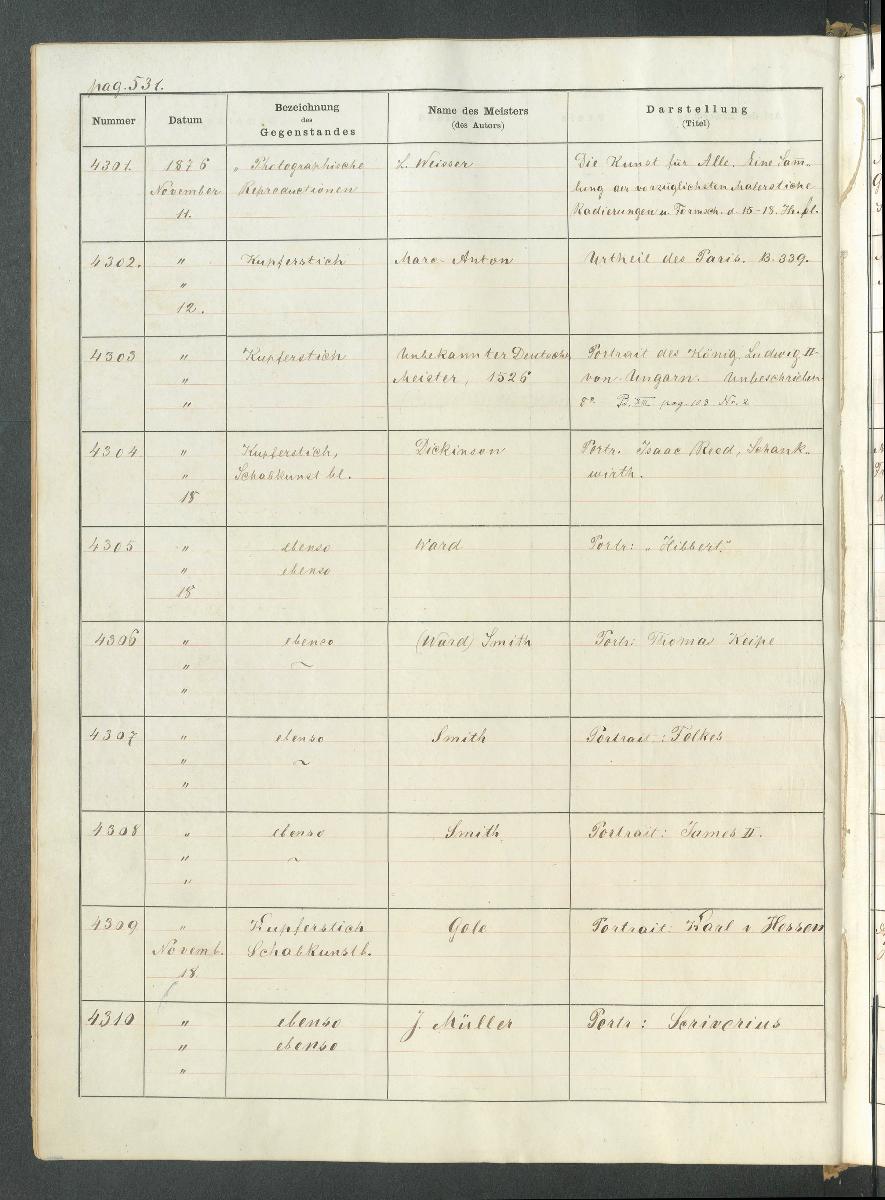 pag. 531.
Nummer Datum Bezeichnung des Gegenstandes Name des Meisters (des Autors) Darstellung (Titel)
4301. 1876 „ Photographische L. Weisser Die Kunst für Alle. Eine Sam̄-
November Reproductionen lung der vorzüglichsten Malerstiche
11. Radierungen u. Formsch. d. 15-18. Jh.
4302. " Kupferstich Marc-Anton Urtheil des Paris. B. 339.
"
12.
4303 " Kupferstich Unbekannter Deutscher Portrait des König Ludwig II
" Meister, 1526 von Ungarn. Unbeschrieben
" 8° B. VIII pag. 103 No. 2
4304 " Kupferstich, Dickinson Portr. Isaac Reed, Schank-
" Schabkunst bl. wirth.
18
4305 " ebenso Ward Portr: „Hibbert."
" ebenso
18
4306 " ebenso (Ward) Smith Portr: Thomas Keipe
" ~
"
4307 " ebenso Smith Portrait: Folkes
" ~
"
4308 " ebenso Smith Portrait: James II.
" ~
"
4309 " Kupferstich Gole Portrait: Karl v Hessen
Novemb. Schabkunstb.
18.
4310 " ebenso J. Müller Portr: Scriverius
" ebenso
"